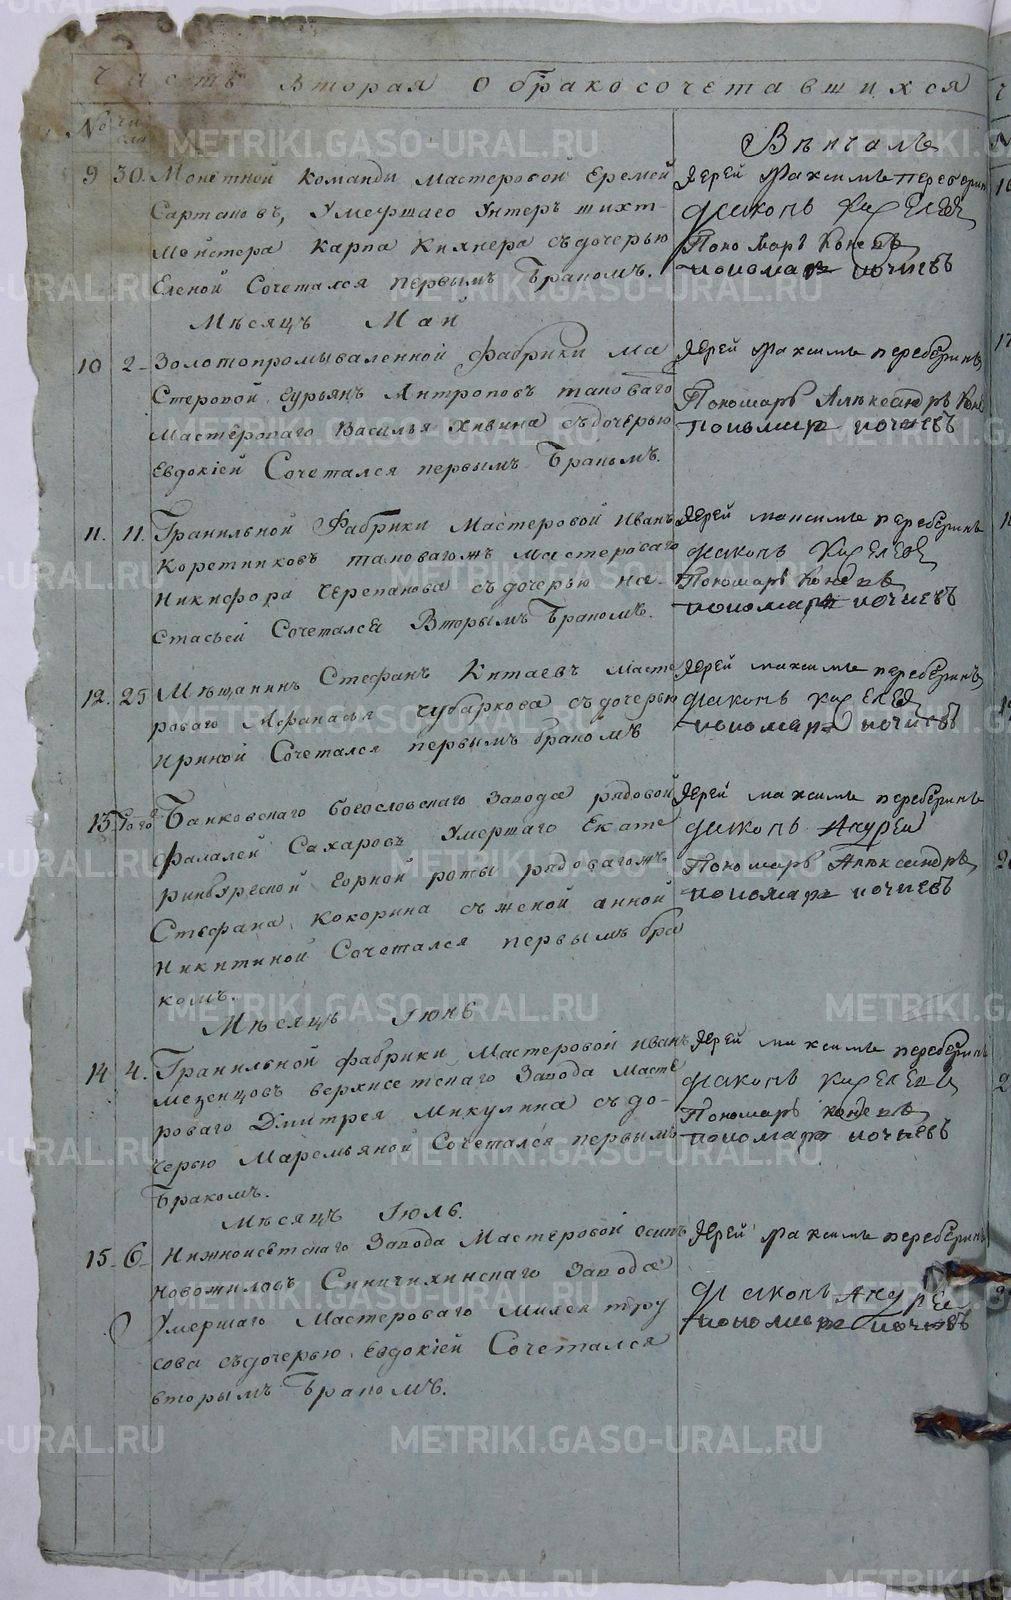 Часть Вторая О бракосочетавшихся
№ чи
сла
Венчалъ
9 30. Монетной Команды Мастеровой Еремей
Сартаковъ, Умершаго Унтеръ шихт-
мейстера Карпа Княпера съ дочерью
Еленой Сочетался первымъ Бракомъ.
Іерей Максимъ переберинъ
діаконъ
Пономарь Коневъ
пономарь ночневъ
Мѣсяцъ Май
10 2 Золотопромываленной фабрики ма
Стеровой Гурьянъ Антроповъ таковаго
Мастероваго Василья Хивина съ дочерью
Евдокіей Сочетался первымъ Бракомъ.
Іерей Максимъ переберинъ
Пономарь Александръ Коне
пономарь ночневъ
11. 11. Гранильной Фабрики Мастеровой Иванъ
Коротниковъ таковагожъ мастероваго
Никифора Черепанова съ дочерью На-
стасьей Сочетался Вторымъ Бракомъ.
Іерей максимъ переберинъ
діаконъ
Пономарь Коневъ
пономарь ночневъ
12. 25 Мѣщанинъ Стефанъ Китаевъ масте
роваго Афанасья Чубаркова съ дочерью
Ириной Сочетался первымъ бракомъ
Іерей максимъ переберинъ
діаконъ
пономарь ночневъ
13 Того Банковскаго богословскаго Завода рядовой
Фалалей Сахаровъ Умершаго Екате
ринбургской Горной роты рядовагожъ
Стефана Кокорина съ женой анной
Никитиной Сочетался первымъ бра
комъ.
Іерей максимъ переберинъ
діаконъ Андрей
Пономарь Александръ
пономарь ночневъ
Мѣсяцъ Іюнь
14 4. Гранильной фабрики Мастеровой иванъ
мезенцовъ верхисетскаго Завода масте
роваго Дмитрея Микулина съ до-
черью Маремьяной Сочетался первымъ
Бракомъ.
Іерей максимъ переберинъ
діаконъ
Пономарь Коневъ
пономарь ночневъ
Мѣсяцъ Іюль.
15 6 Нижноисетскаго Завода Мастеровой осипъ
Новожиловъ Синичихинскаго Завода
Умершаго Мастероваго Тру
сова съ дочерью Евдокіей Сочетался
вторымъ Бракомъ.
Іерей Максимъ переберинъ
діаконъ Андрей
пономарь ночневъ
METRIKI.GASO-URAL.RU